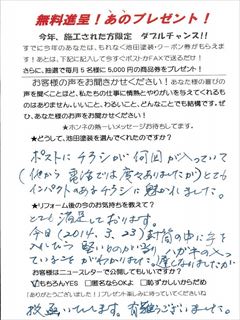 無料進呈！あのプレゼント！
今年、施工された方限定　ダブルチャンス！！
すでに今年のあなたは、もれなく池田塗装・クーポン券がもらえま
す！あとは、下記に記入して今すぐポストかFAXで送るだけ！
さらに、抽選で毎月5名様に5,000円の商品券をプレゼント！
お客様の声をお聞きかせください！あなた様の喜びの
声を聞くことほど、私たちの仕事に情熱とやりがいを与えてくれるも
のはありません。いいこと、わるいこと、どんなことでも結構です。ぜ
ひ、あなた様のお声お聞かせください！
★ホンネの熱ーいメッセージお待ちしてます。
★どうして、池田塗装を選んでくれたのですか？
ポストにチラシが何回か入っていて
(他から電話では度々ありましたが)とても
インパクトのあるチラシに魅かれました。
★リフォーム後の今のお気持ちを教えて？
とても満足しております。
今日(2014.3.23)封筒の中に手を
入れたら堅いものが当りハガキの入っ
ていることがわかりました。遅くなりましたが
お客様はニュースレターで公開してもいいですか？
☑もちろんYES　□匿名ならOKよ　□恥ずかしいからだめ
「ありがとうございました！」プレゼント楽しみに待っていてくださいね
投函いたします。有難うございました。